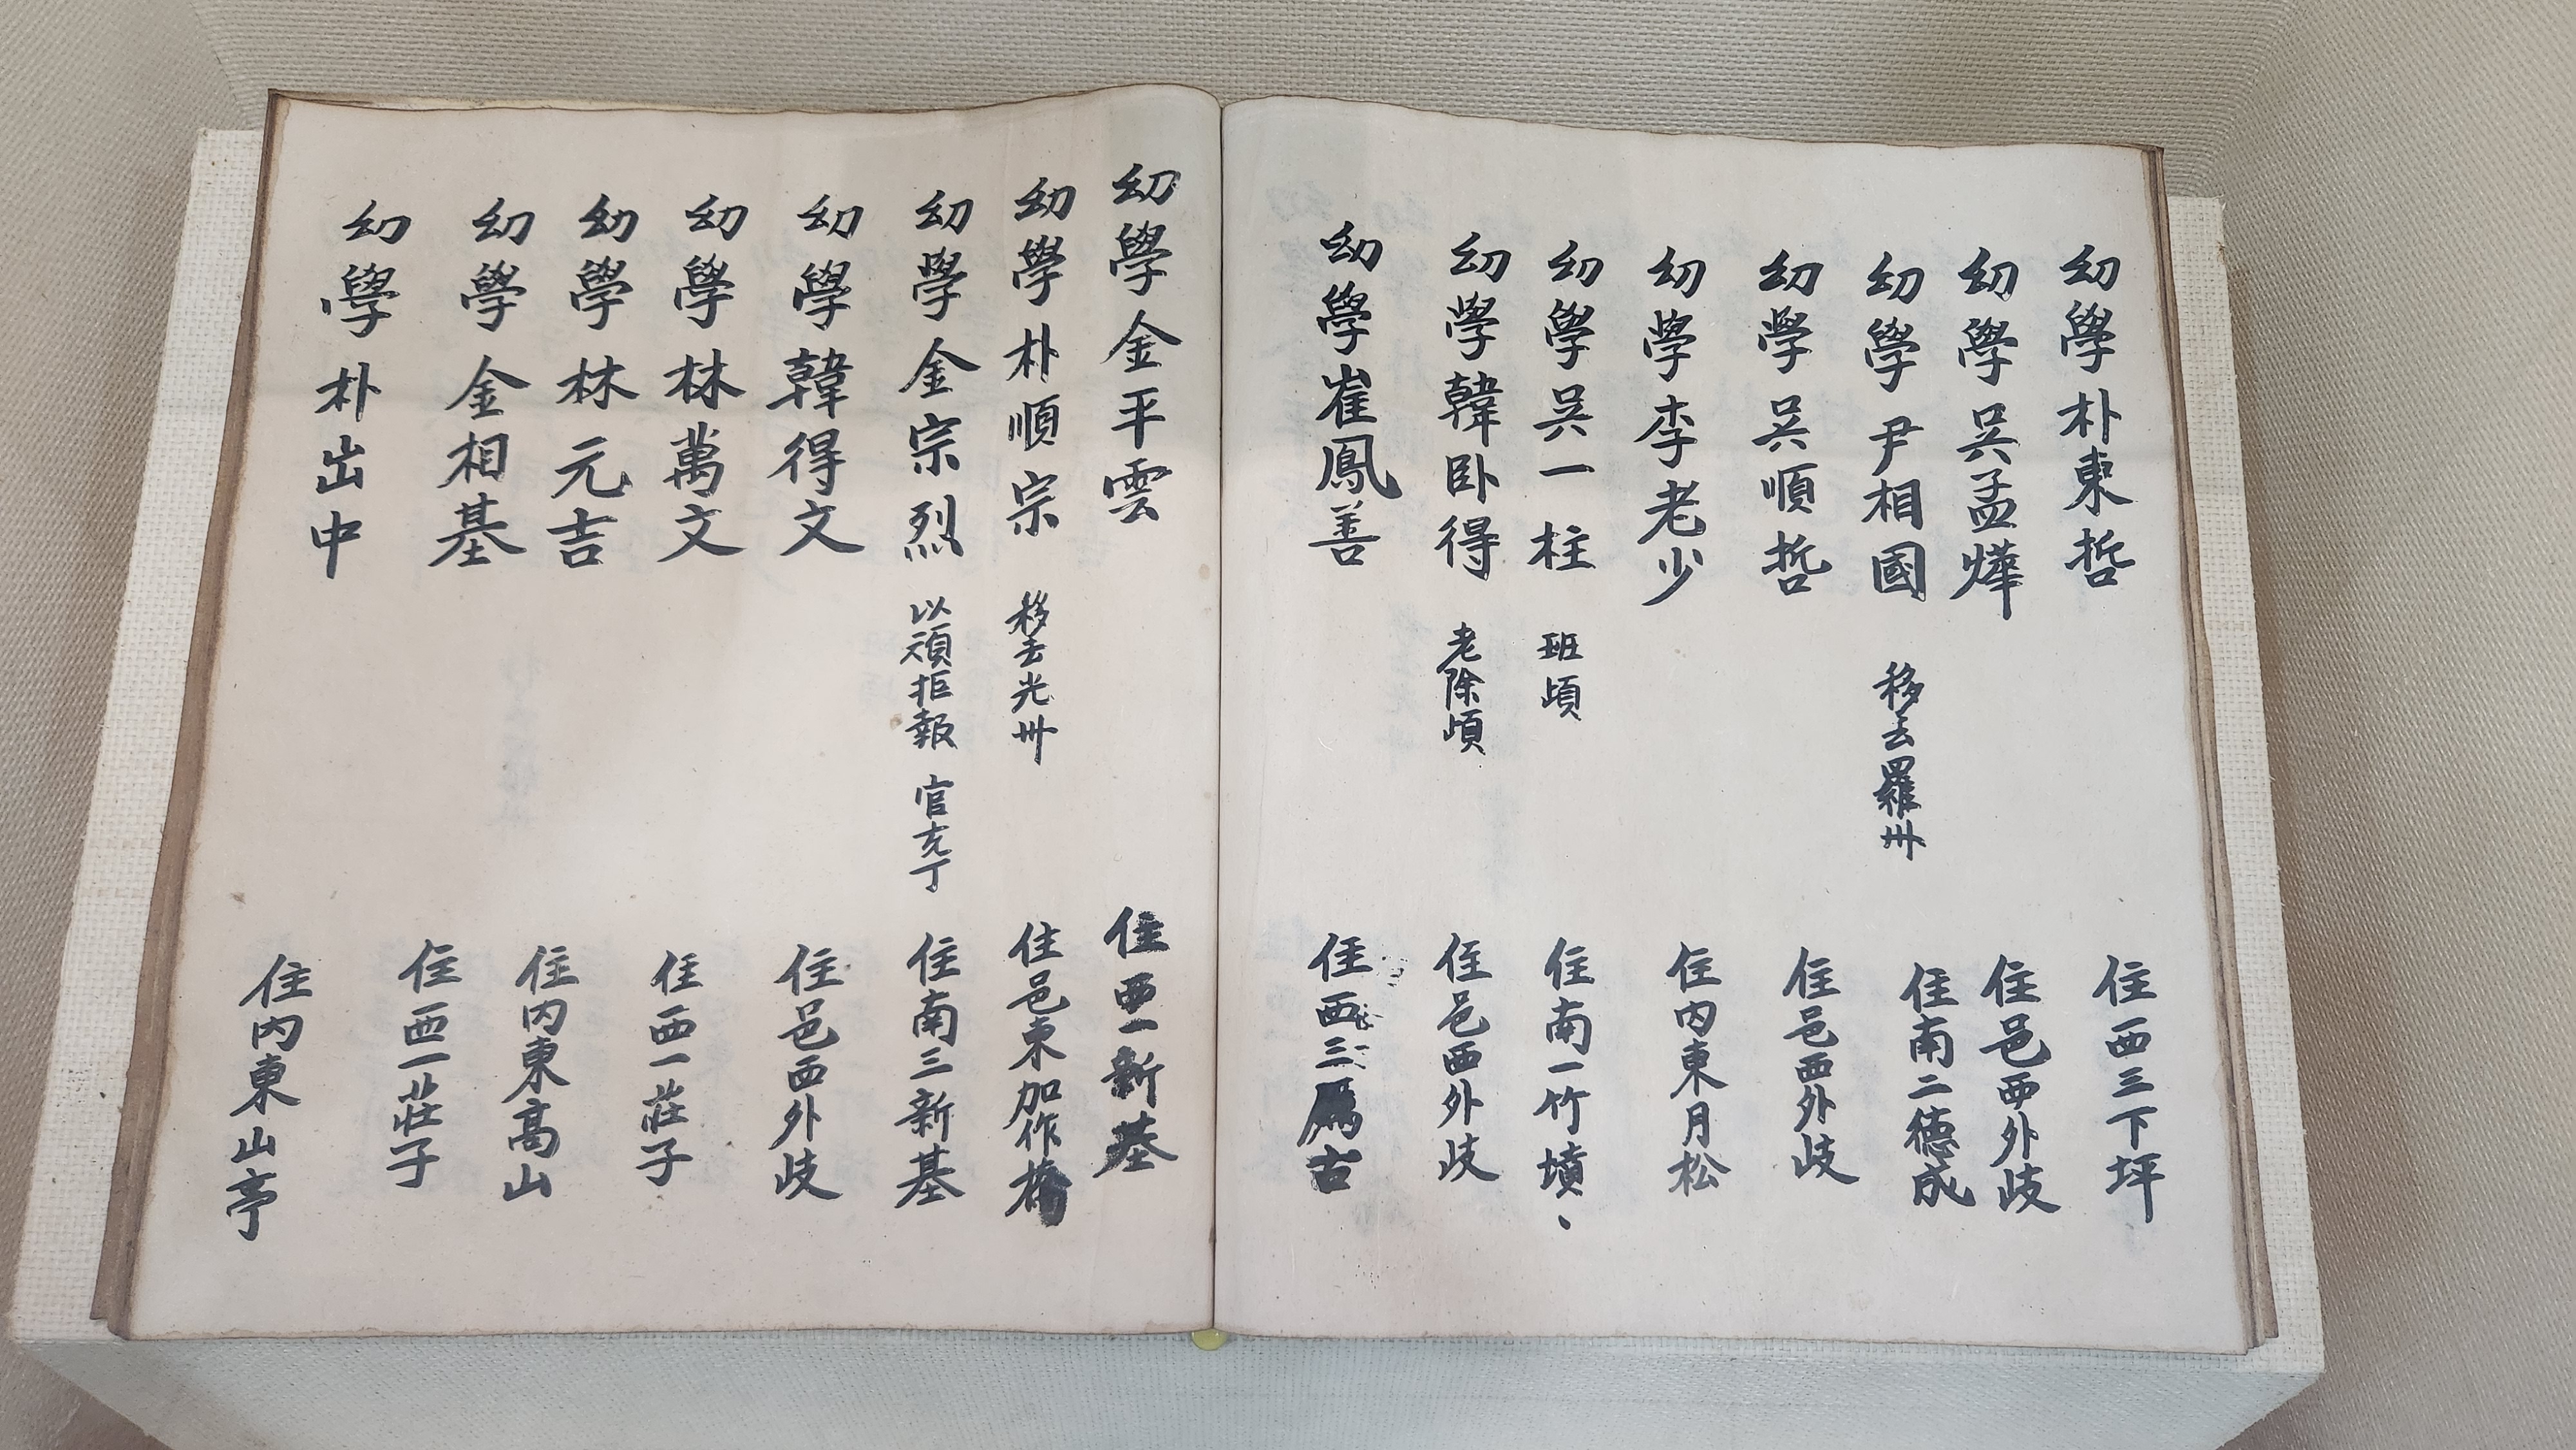 幼學朴東哲 住西三下坪
幼學吳孟燁 住邑西外歧
幼學尹相國 移去羅州 住南二德成
幼學吳順哲 住邑西外歧
幼學李老少 住內東月松
幼學吳一柱 班頉 住南一竹墳、
幼學韓卧得 老除頉 住邑西外歧
幼學崔鳳善 住西三古
幼學金平雲 住西一新基
幼學朴順宗 移去光州 住邑東加作
幼學金宗烈 以頑拒報 官充丁 住南三新基
幼學韓得文 住邑西外歧
幼學林萬文 住西一莊子
幼學林元吉 住內東高山
幼學金相基 住西一莊子
幼學朴出中 住內東山亭